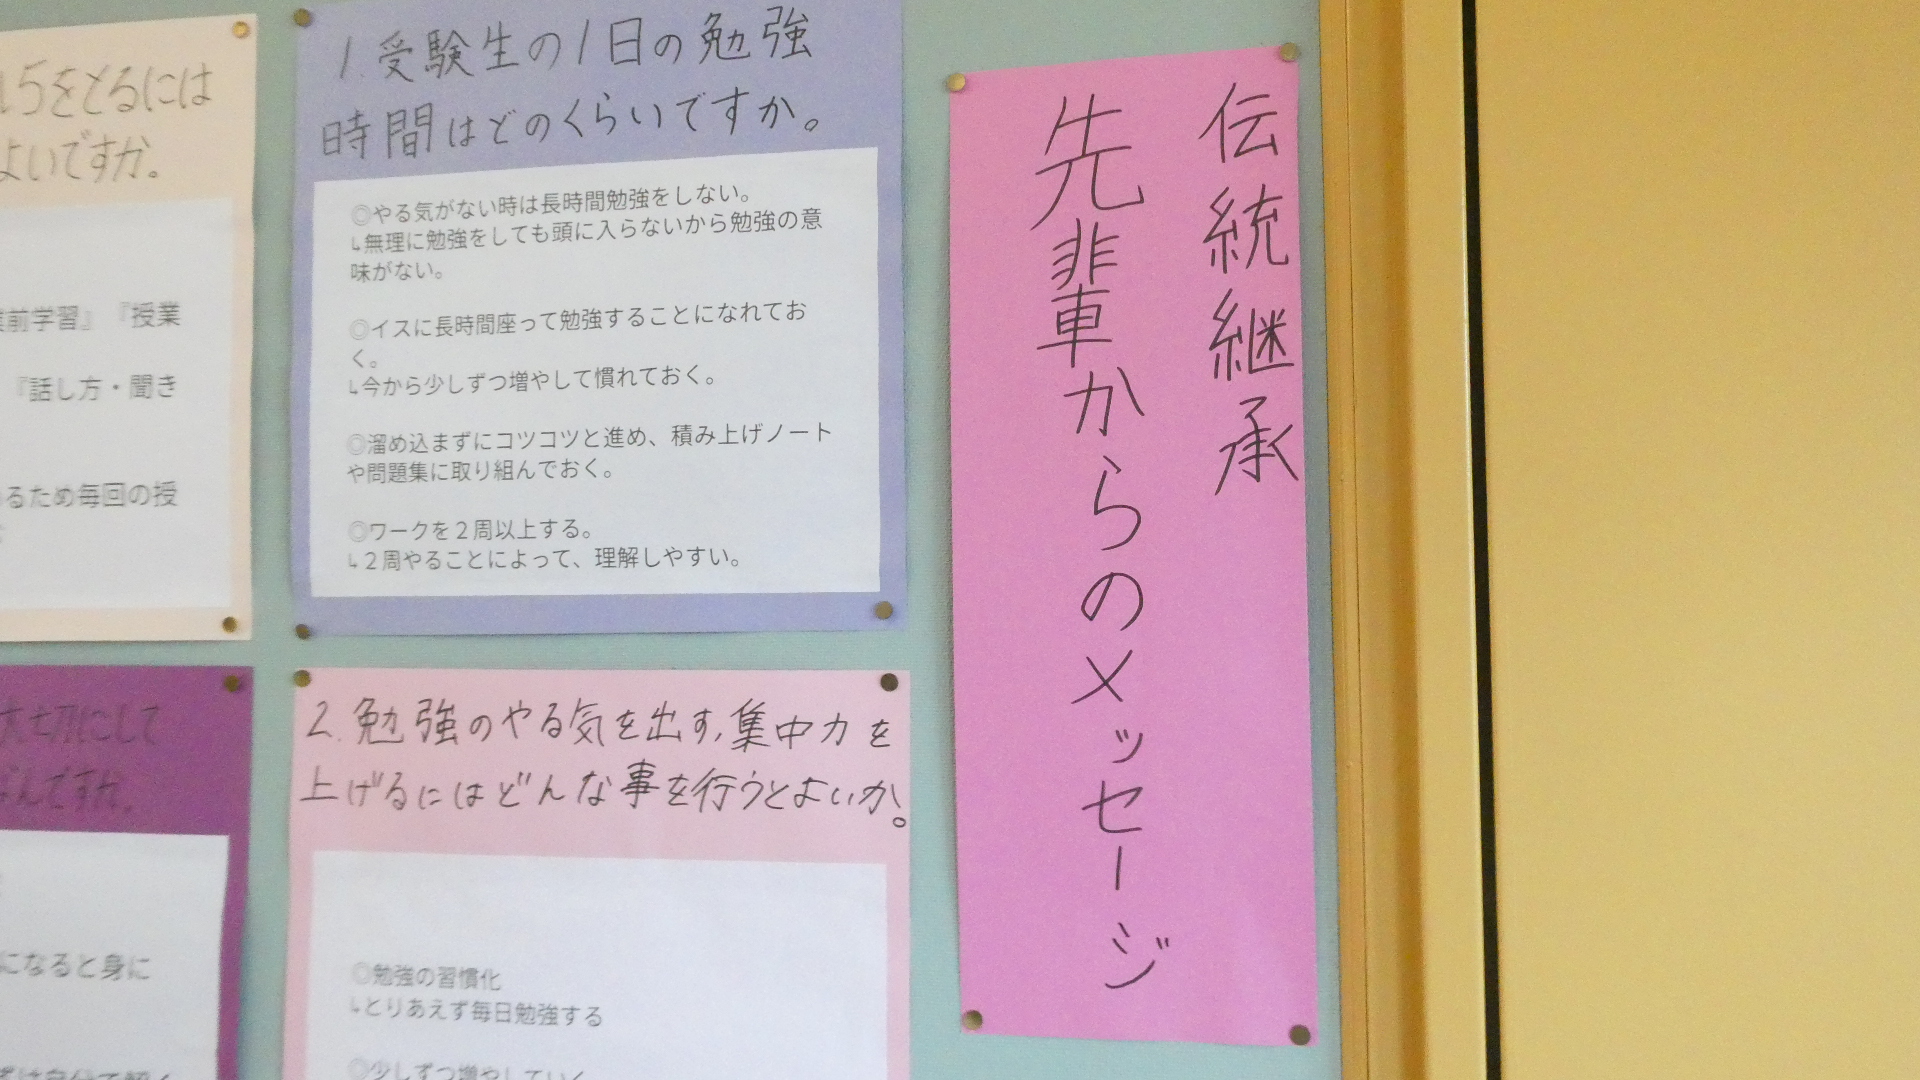 伝統継承
先輩からのメッセージ
1.受験生の1日の勉強
時間はどのくらいですか。
◎やる気がない時は長時間勉強をしない。
↳無理に勉強をしても頭に入らないから勉強の意
味がない。
◎イスに長時間座って勉強することになれてお
く。
↳今から少しずつ増やして慣れておく。
◎溜め込まずにコツコツと進め、積み上げノート
や問題集に取り組んでおく。
◎ワークを２周以上する。
↳２周やることによって、理解しやすい。
2.勉強のやる気を出す,集中力を
上げるにはどんな事を行うとよいか。
◎勉強の習慣化
↳とりあえず毎日勉強する
◎少しずつ増やしていく
5をとるには
よいですか。
前学習』『授業
『話し方・聞き
るため毎回の授
大切にして
なんですか。
になると身に